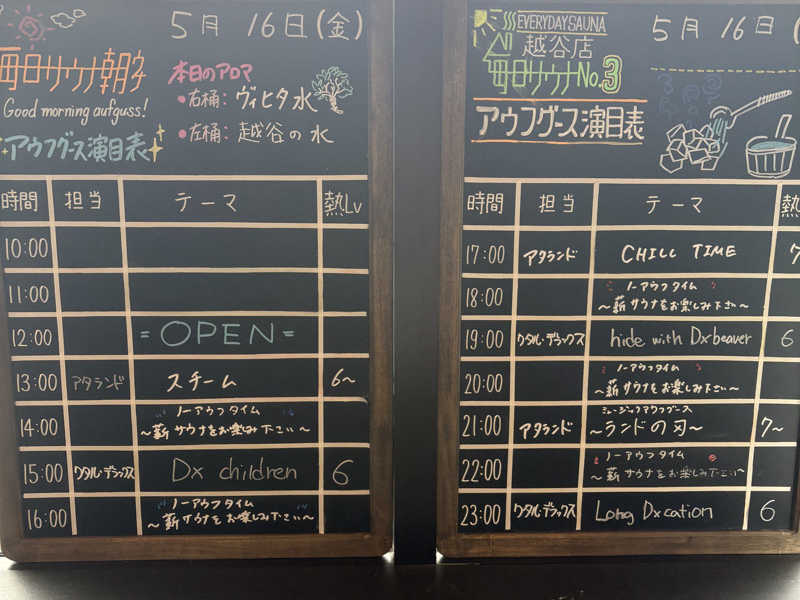 5月 16日(金)
毎日サウナ朝夕
Good morning aufguss!
アウフグース演目表
本日のアロマ
•右桶: ヴィヒタ水
•左桶: 越谷の水
時間 担当 テーマ 熱Lv
10:00
11:00
12:00 =OPEN=
13:00 アタランド スチーム 6~
14:00 ノーアウフタイム
~薪サウナをお楽しみ下さい~
15:00 ワタル・デラックス Dx children 6
16:00 ノーアウフタイム
~薪サウナをお楽しみ下さい~
EVERYDAY SAUNA
越谷店
毎日サウナNo.3
アウフグース演目表
5月 16日(
時間 担当 テーマ 熱
17:00 アタランド CHILL TIME 7
18:00 ノーアウフタイム
~薪サウナをお楽しみ下さい~
19:00 ワタル・デラックス hide with Dxbeaver 6
20:00 ノーアウフタイム
~薪サウナをお楽しみ下さい~
21:00 アタランド ミュージックアウフグース
~ランドの刃~ 7~
22:00 ノーアウフタイム
~薪サウナをお楽しみ下さい~
23:00 ワタル・デラックス Long Dxcation 6